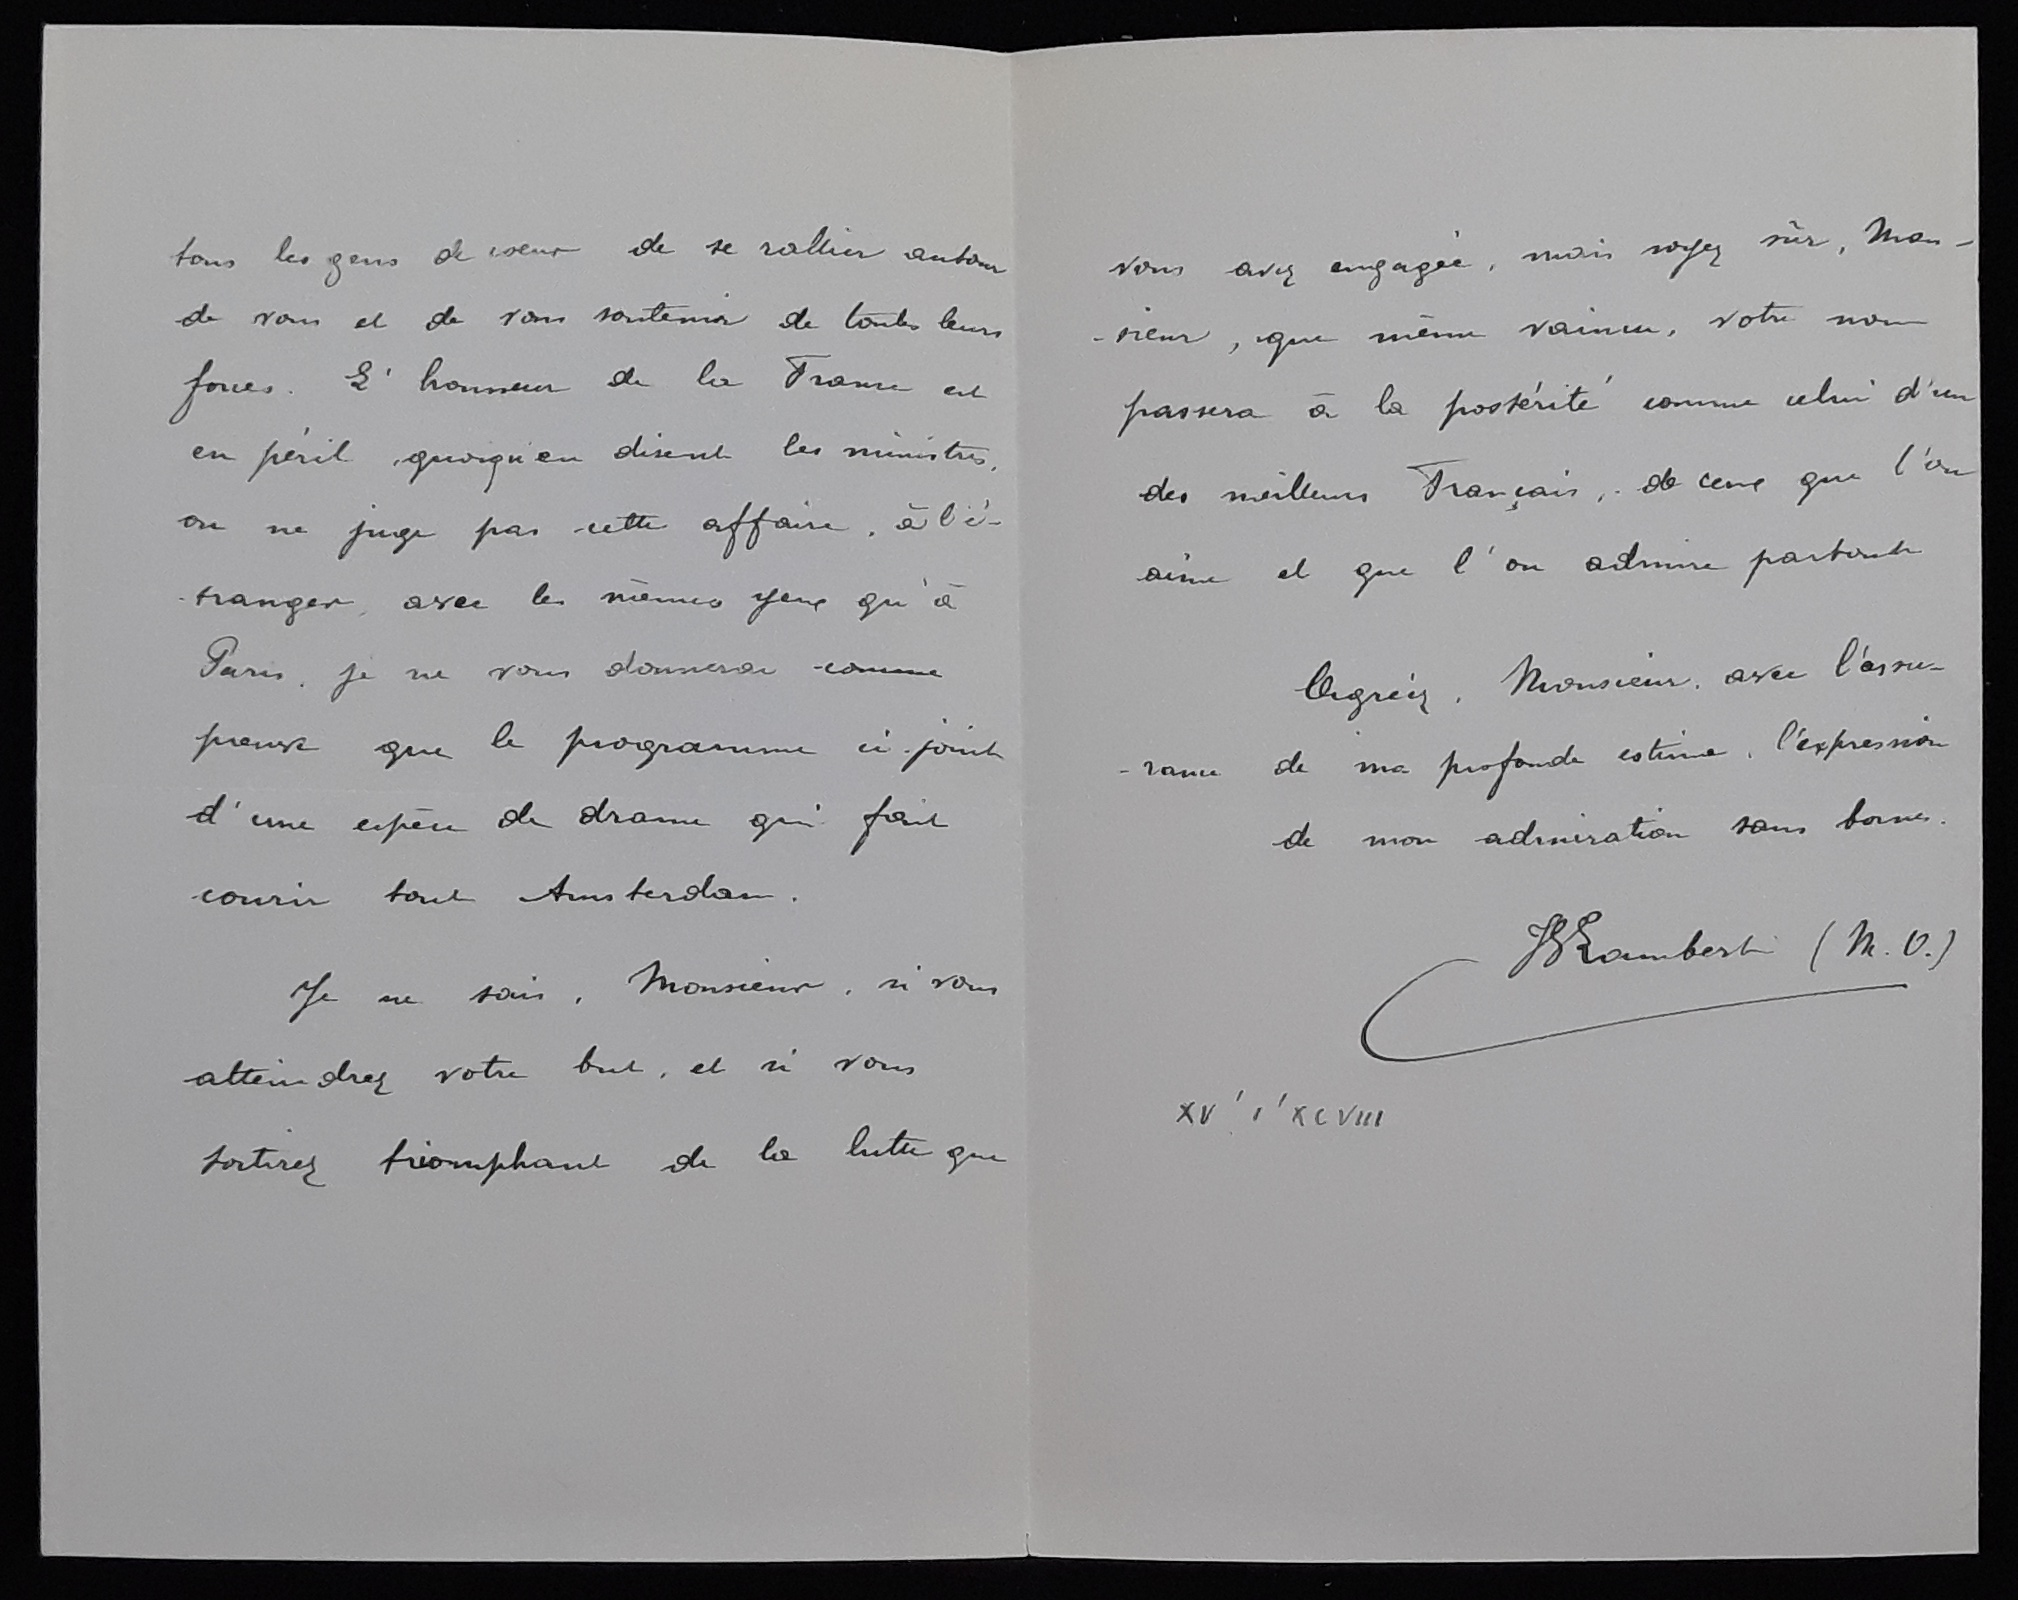 tous les gens de cœur de se rallier autour
de vous et de vous soutenir de toutes leurs
forces. L'honneur de la France est
en péril, quoiqu'en disent les ministres,
on ne juge pas cette affaire, à l'é-
-tranger, avec les mêmes yeux qu'à
Paris, je ne vous donnerai comme
preuve que le programme ci-joint
d'une espèce de drame qui fait
courir tout Amsterdam.
Je ne sais, Monsieur, si vous
atteindrez votre but, et si vous
sortirez triomphant de la lutte que
vous avez engagée, mais soyez sûr, Mon-
-sieur, que même vaincu, votre nom
passera à la postérité comme celui d'un
des meilleurs Français, de ceux que l'on
aime et que l'on admire partout
Agréez, Monsieur, avec l'assu-
-rance de ma profonde estime, l'expression
de mon admiration sans bornes.
Lambert (M.O.)
XV' I' XCVIII